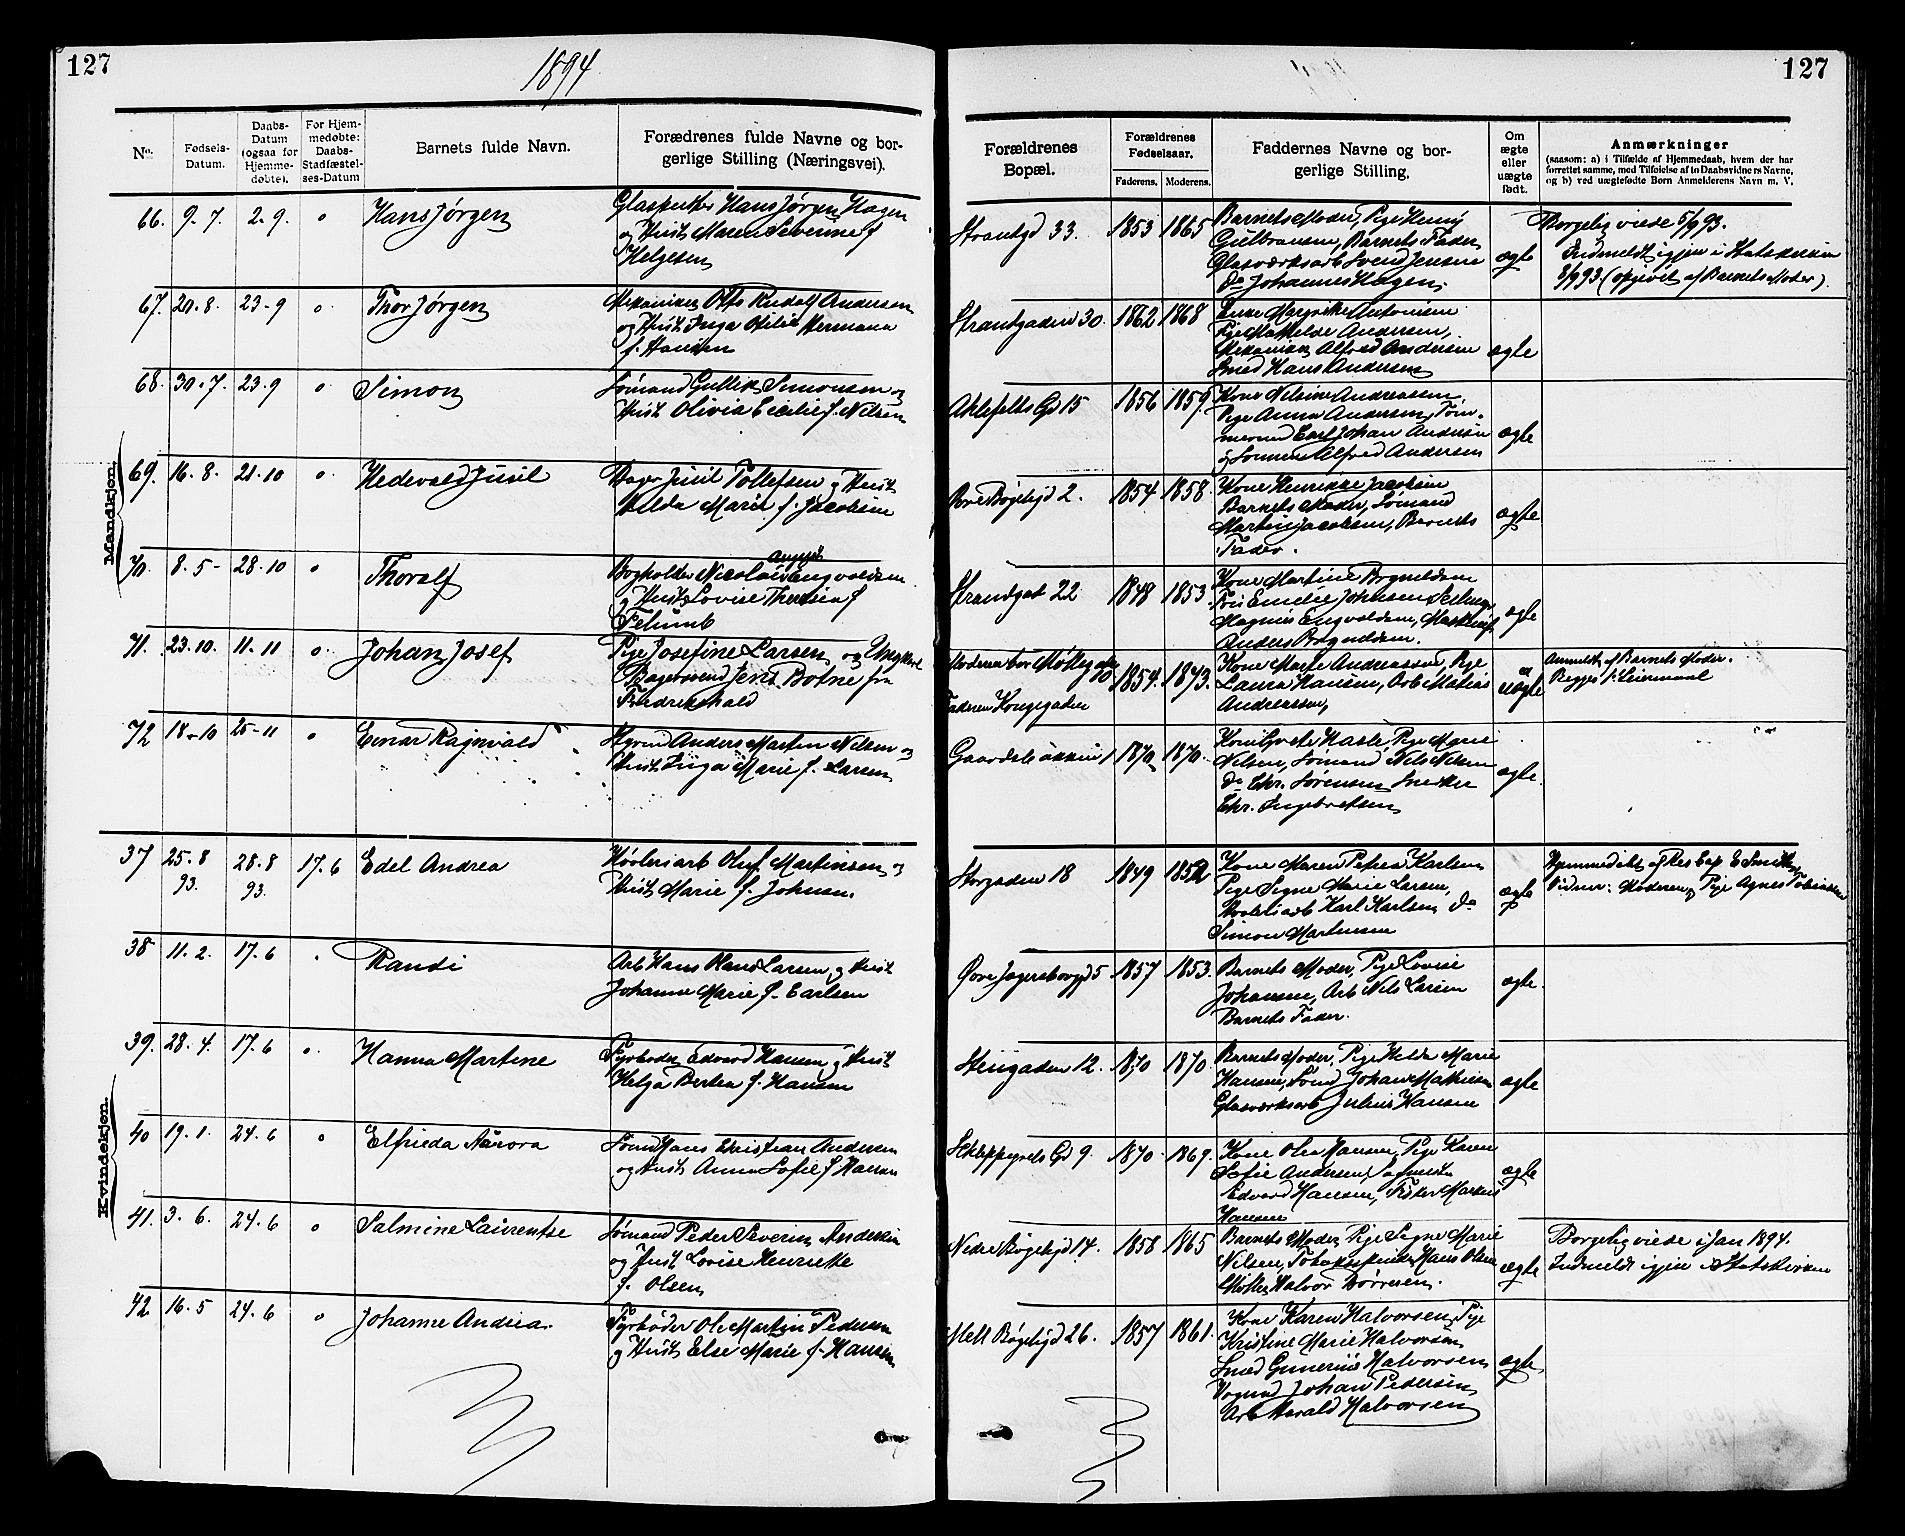 127
1894
127
No.
Fødsels-
Datum.
Daabs-
Datum
(ogsaa før
Hjemme-
døbte).
For Hjem-
medøbte:
Daabs-
Stadfæstel-
ses-Datum
Barnets fulde Navn.
Forældrenes fulde Navne og bor-
gerlige Stilling (Næringsvei).
Forældrenes
Bopæl.
Forældrenes
Fødselsaar.
Faderens. Moderens.
Faddernes Navne og bor-
gerlige Stilling.
Om
ægte
eller
uægte
født.
Anmærkninger
(saasom: a) i Tilfælde af Hjemmedaab, hvem der har
forrettet samme, med Tilføielse af to Daabsvidners Navne,
og b) ved uægtefødte Børn Anmelderens Navn m. V.
Mandkjøn.
66. 9. 7. 2. 9. " Hans Jørgen
Hans Jørgen Hagen
og Hust. Maren Severine f
Helgesen
Strandgd 33. 1853 1865
Barnets Moder, Pige Henny
Gulbransen, Barnets Fader
Glasværksarb Svend Jensen
Do Johannes Hagen
ægte
Borgelig viede 5/9 93.
Indmeldt igjen i Statskirken
8/9 93 (opgivet af Barnets Moder).
67. 20. 8. 23-9 " Thor Jørgen
Mekaniker Otto Rudolf Andersen
og Hust. Inga Otilie Hermana
f. Hansen
Strandgaden 30. 1862 1868
Margrethe Antonisen
Pige Mathilde Andersen,
Mekaniker Alfred Andersen
Smed Hans Andersen
ægte
68. 30. 7. 23. 9 " Simon
Sømand Gullik Simonsen og
Hust. Olivia Cecilie f. Nilsen
Ahlefelts Gd 15 1856 1859.
Kone Nilsine Andreassen,
Pige Anna Andersen, Tøm-
mermd Carl Johan Andersen
og Sømand Alfred Andersen
ægte
69. 16. 8. 21. 10 " Hedevald Juul
Juul Tollefsen og Hust
Hilda Marie f. Jacobsen
Øvre Bøgelyd 2. 1854 1858.
Kone Henrikke Jacobsen
Barnets Moder, Sømand
Martin Jacobsen, Barnets
Fader.
ægte
70. 8. 5- 28. 10 " Thoralf
Bogholder Nicolai August Engvoldsen
og Hust. Lovise Theresia f
Strandgat 22 1848 1853.
Kone Martine Bryneldsen
Emelie Johnsen
Magnus Engvoldsen,
Anders Bryneldsen.
ægte
71. 23. 10. 11. 11 " Johan Josef
Pige Josefine Larsen og Ungkarl
Bagersvend Jens Bothne fra
Fredrikshald
Moderen bor Møllegaden 10
Faderen Kongegaden
1854. 1873.
Kone Marte Andreassen, Pige
Laura Hansen, Arb Matias
Andreassen,
uægte
Anmeldt af Barnets Moder.
Begges 1. Leiermaal
72 18-10 25-11 " Einar Ragnvald
Styrmd Anders Martin Nilsen og
Hust. Inga Marie f. Larsen
Gaardeløkken 1 1870 1870.
Kone Grete Hasle, Pige Marie
Nilsen, Sømand Nils Nilsen
Do Chr. Sørensen Snedker
Chr. Ingebretsen
ægte.
Kvindekjøn.
37 25. 8 93. 28. 8 93. 17. 6 Edel Andrea
Høvleriarb Oluf Martinsen og
Hust. Marie f. Johnsen.
Storgaden 18 1849 1852
Kone Maren Petrea Karlsen
Pige Signe Marie Larsen,
Høvleriarb Karl Karlsen, Do
Simon Martinsen
ægte
Hjemmedøbt af Res Cap E Smith
Vidner: Moderen og Pige Agnes Tobiassen
38 11. 2. 17. 6 " Randi
Arb Hans Larsen og Hust
Johanne Marie f. Carlsen
Øvre Jegersborggd 5 1857 1853.
Barnets Moder, Pige Lovise
Johansen, Arb Nils Larsen
Barnets Fader.
ægte.
39. 28. 4. 17. 6 " Hanna Martine
Fyrbøder Edvard Hansen og Hust
Helga Bertea f. Hansen
Stengaden 12. 1870 1870.
Barnets Moder, Pige Hilda Marie
Hansen, Sømd Johan Mathisen
Glasværksarb Julius Hansen
ægte
40 19. 1. 24. 6 " Elfrieda Aurora
Sømd Hans Christian Andersen
og Hust Anna Sofie f Hansen
Skleppgrels Gd 9. 1870 1869.
Kone Olea Hansen, Pige Karen
Sofie Andersen,
Edvard Hansen, Fisker Markus
Hansen
ægte
41. 3. 6. 24. 6 " Salmine Laurentse
Sømand Peder Severin Andersen
og Hust Lovise Henriette
f. Olsen
Nedre Bøgelyd 14. 1858 1865
Barnets Moder, Pige Signe Marie
Nilsen, Tobaksspinder Hans Olsen
Møller Halvor Børresen.
ægte
Borgelig viede i Jan 1894.
Indmeldt igjen i Statskirken
42 16. 5 24. 6 " Johanne Andrea.
Fyrbøder Ole Martin Pedersen
og Hust Else Marie f. Hansen
Mell Bøgelyd 26. 1857 1861.
Kone Karen Halvorsen, Pige
Kristine Marie Halvorsen
Smed Gunerius Halvorsen
Vognmd Johan Pedersen
Arb Harald Halvorsen
ægte